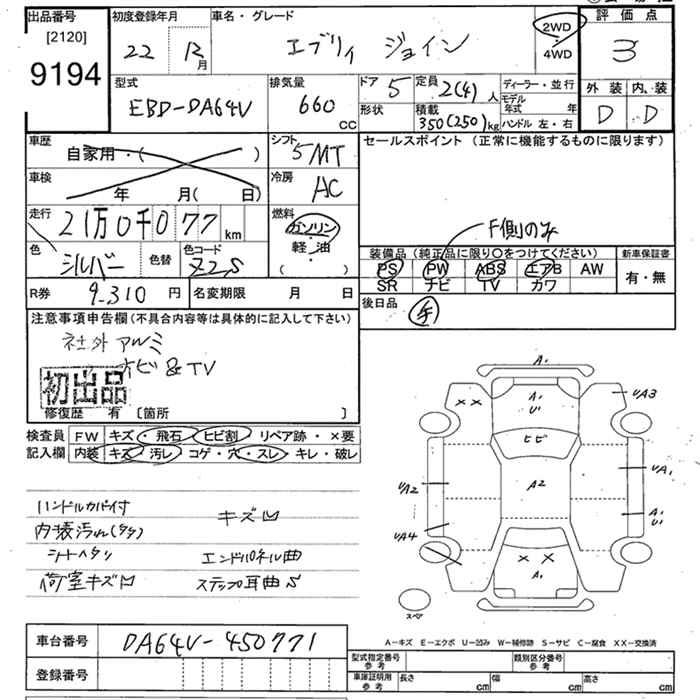 出品番号 初度登録年月 車名・グレード 評価点
[2120] 22 年 12月 エブリィ ジョイン 2WD 4WD 3
9194
型式 排気量 ドア 5 定員 2(4)人 ディーラー・並行 外装 内装
EBD-DA64V 660 CC 形状 積載 350(250)kg モデル年式 年 D D
ハンドル 左・右
車歴 シフト セールスポイント (正常に機能するものに限ります)
自家用・( ) 5MT
車検 冷房
年 月( 日) AC
走行 燃料
21万0千077 km ガソリン F側のみ
色 色替 色コード 軽・油 装備品 (純正品に限り○をつけてください) 新車保証書
シルバー Z2S ( ) PS PW ABS エアB AW 有・無
SR ナビ TV カワ
R券 9,310 円 名変期限 月 日 後日品
注意事項申告欄 (不具合内容等は具体的に記入して下さい) 手
社外 アルミ
ナビ & TV
初出品
修復歴 有 [箇所 ]
検査員 FW キズ・飛石 ヒビ割 リペア跡・×要
記入欄 内装 キズ 汚レ コゲ・穴・スレ・キレ・破レ
ハンドルカバー付 キズ凹
内装汚れ
シートヘタリ エンドパネル曲
荷室キズ凹 ステップ耳曲S
A1
A1
U1
XX
UA3
ヒビ
UA2
A2
UA1
A1
U1
UA4
XX
A1
スペア
A-キズ E-エクボ U-凹み W-補修跡 S-サビ C-腐食 XX-交換済
車台番号 DA64V-450771
登録番号
型式指定番号 参考 類別区分番号 参考
車庫証明用 参考 長さ cm 幅 cm 高さ cm